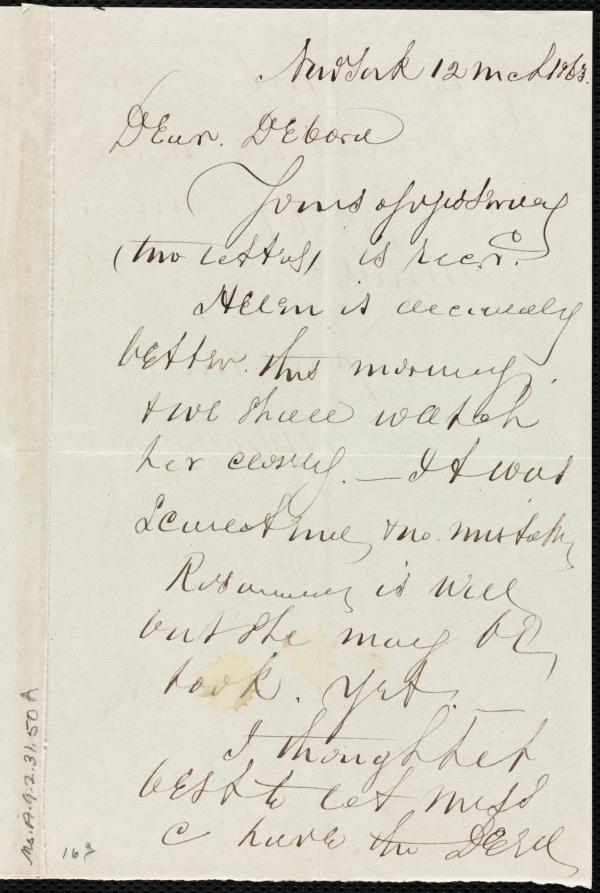 New York 12 Mch 1863.
Dear. Debora
Yours of yesterday
(two letters) is recd.
Helen is decidedly
better this morning.
& we shall watch
her closely. — It was
Scarlet & no mistake,
Rosamund is well
but she may be
took. Yet. —
I thought it
best to let Miss
C have the Deed
Ms.A.9.2.31.50A